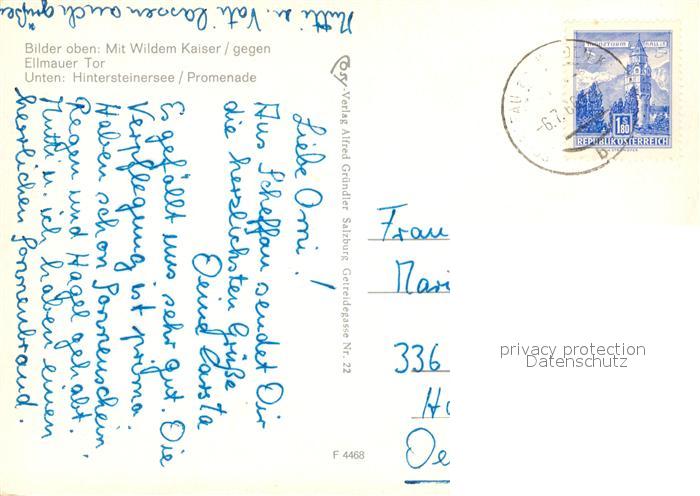 Mutti u. Vati lassen auch grüßen
Bilder oben: Mit Wildem Kaiser / gegen
Ellmauer Tor
Unten: Hintersteinersee / Promenade
Liebe Omi!
Aus Scheffau sendet Dir
die herzlichsten Grüße
Deine Carsta
Es gefällt uns sehr gut. Die
Verpflegung ist prima.
Haben schon Sonnenschein
Regen und Hagel gehabt.
Mutti u. ich haben einen
herrlichen Sonnenbrand.
Verlag Alfred Gründler Salzburg Getreidegasse Nr. 22
F 4468
Frau
Mari
336
Ha
Oe
MÜNZTURM HALL i. T.
1 S 80
REPUBLIK ÖSTERREICH
-6.7.6
b
privacy protection
Datenschutz